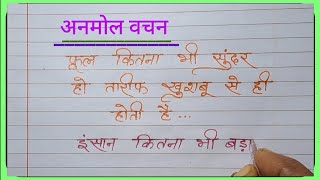 अनमोल वचन
फूल कितना भी सुंदर
हो तारीफ खुशबू से ही
होती है...
इंसान कितना भी बड़ा